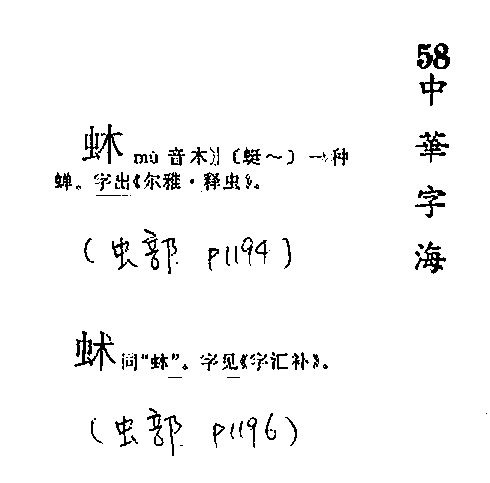 58
中華字海
蚞 mù 音木〔蜓～〕一种
蝉。字出《尔雅·释虫》。
(虫部 P1194)
同“蚞”。字见《字汇补》。
(虫部 P1196)